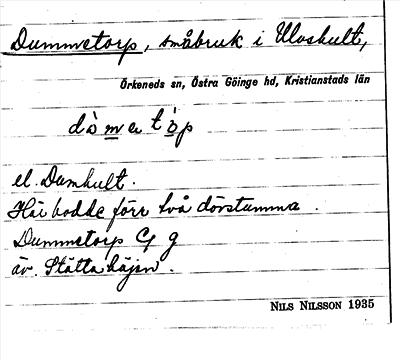 Dummetorp, småbruk i Uloshult,
Örkeneds sn, Östra Göinge hd, Kristianstads län
el. Dumhult.
Här bodde förr två dövstumma.
Dummetorp
äv. Slätta
NILS NILSSON 1935